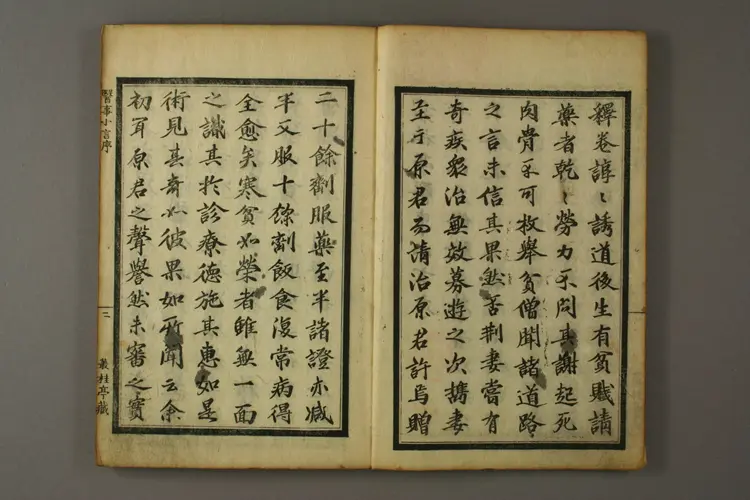 釋卷諄〻誘道後生有貧賤請
藥者乾〻勞力不問其謝起死
肉骨不可枚舉貧僧聞諸道路
之言未信其果然否荆妻嘗有
奇疾眾治無效募遊之次携妻
至于原君而請治原君許焉贈
二十餘劑服藥至半諸證亦減
半又服十餘劑飯食復常病得
全愈矣寒貧如榮者雖無一面
之識其於診療德施其惠如是
術見其奇如彼果如所聞云余
初耳原君之聲譽然未審之實
醫事小言序
二
叢桂亭藏